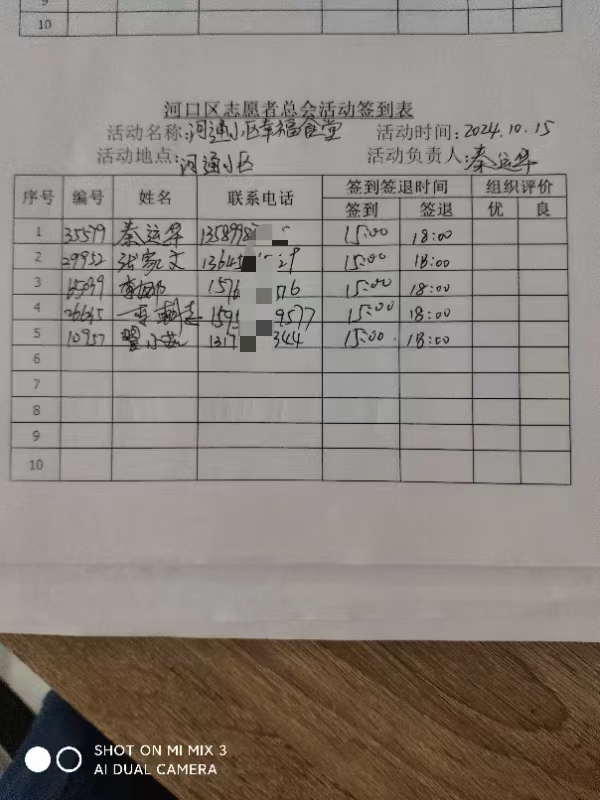 10
河口区志愿者总会活动签到表
活动名称:河通小区幸福食堂 活动时间:2024.10.15
活动地点:河通小区 活动负责人:秦运华
序号 编号 姓名 联系电话 签到签退时间 组织评价
签到 签退 优 良
1 35579 秦运华 1358998 15:00 18:00
2 29952 张家文 13645 29 15:00 18:00
3 1576 76 15:00 18:00
4 159 9577 15:00 18:00
5 10957 翟小茹 1317 344 15:00 18:00
6
7
8
9
10
SHOT ON MI MIX 3
AI DUAL CAMERA